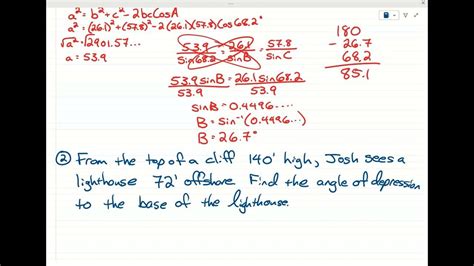 a² = b² + c² - 2bcCosA
a² = (26.1)² + (57.8)² - 2(26.1)(57.8)Cos68.2°
√a² = √2901.57...
a = 53.9
53.9/Sin68.2 = 26.1/SinB = 57.8/SinC
53.9SinB/53.9 = 26.1Sin68.2/53.9
SinB = 0.4496...
B = Sin⁻¹(0.4496...)
B = 26.7°
180
- 26.7
68.2
85.1
② From the top of a cliff 140' high, Josh sees a
lighthouse 72' offshore. Find the angle of depression
to the base of the lighthouse.